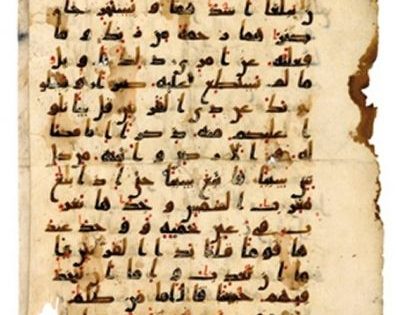 يبلغا اشدهما ويستخرجا
كنزهما رحمة من ربك وما
فعلته عن امري ذلك تاويل
ما لم تسطع عليه صبرا ويسلو
نك عن ذي القرنين قل ساتلو
ا عليكم منه ذكرا انا مكنا
له في الارض واتينه من كل
شي سببا فاتبع سببا حتى اذا بلغ
مغرب الشمس وجدها تغر
ب في عين حمية ووجد عند
ها قوما قلنا يذا القرنين ا
ما ان تعذب واما ان تتخذ
فيهم حسنا قال اما من ظلم